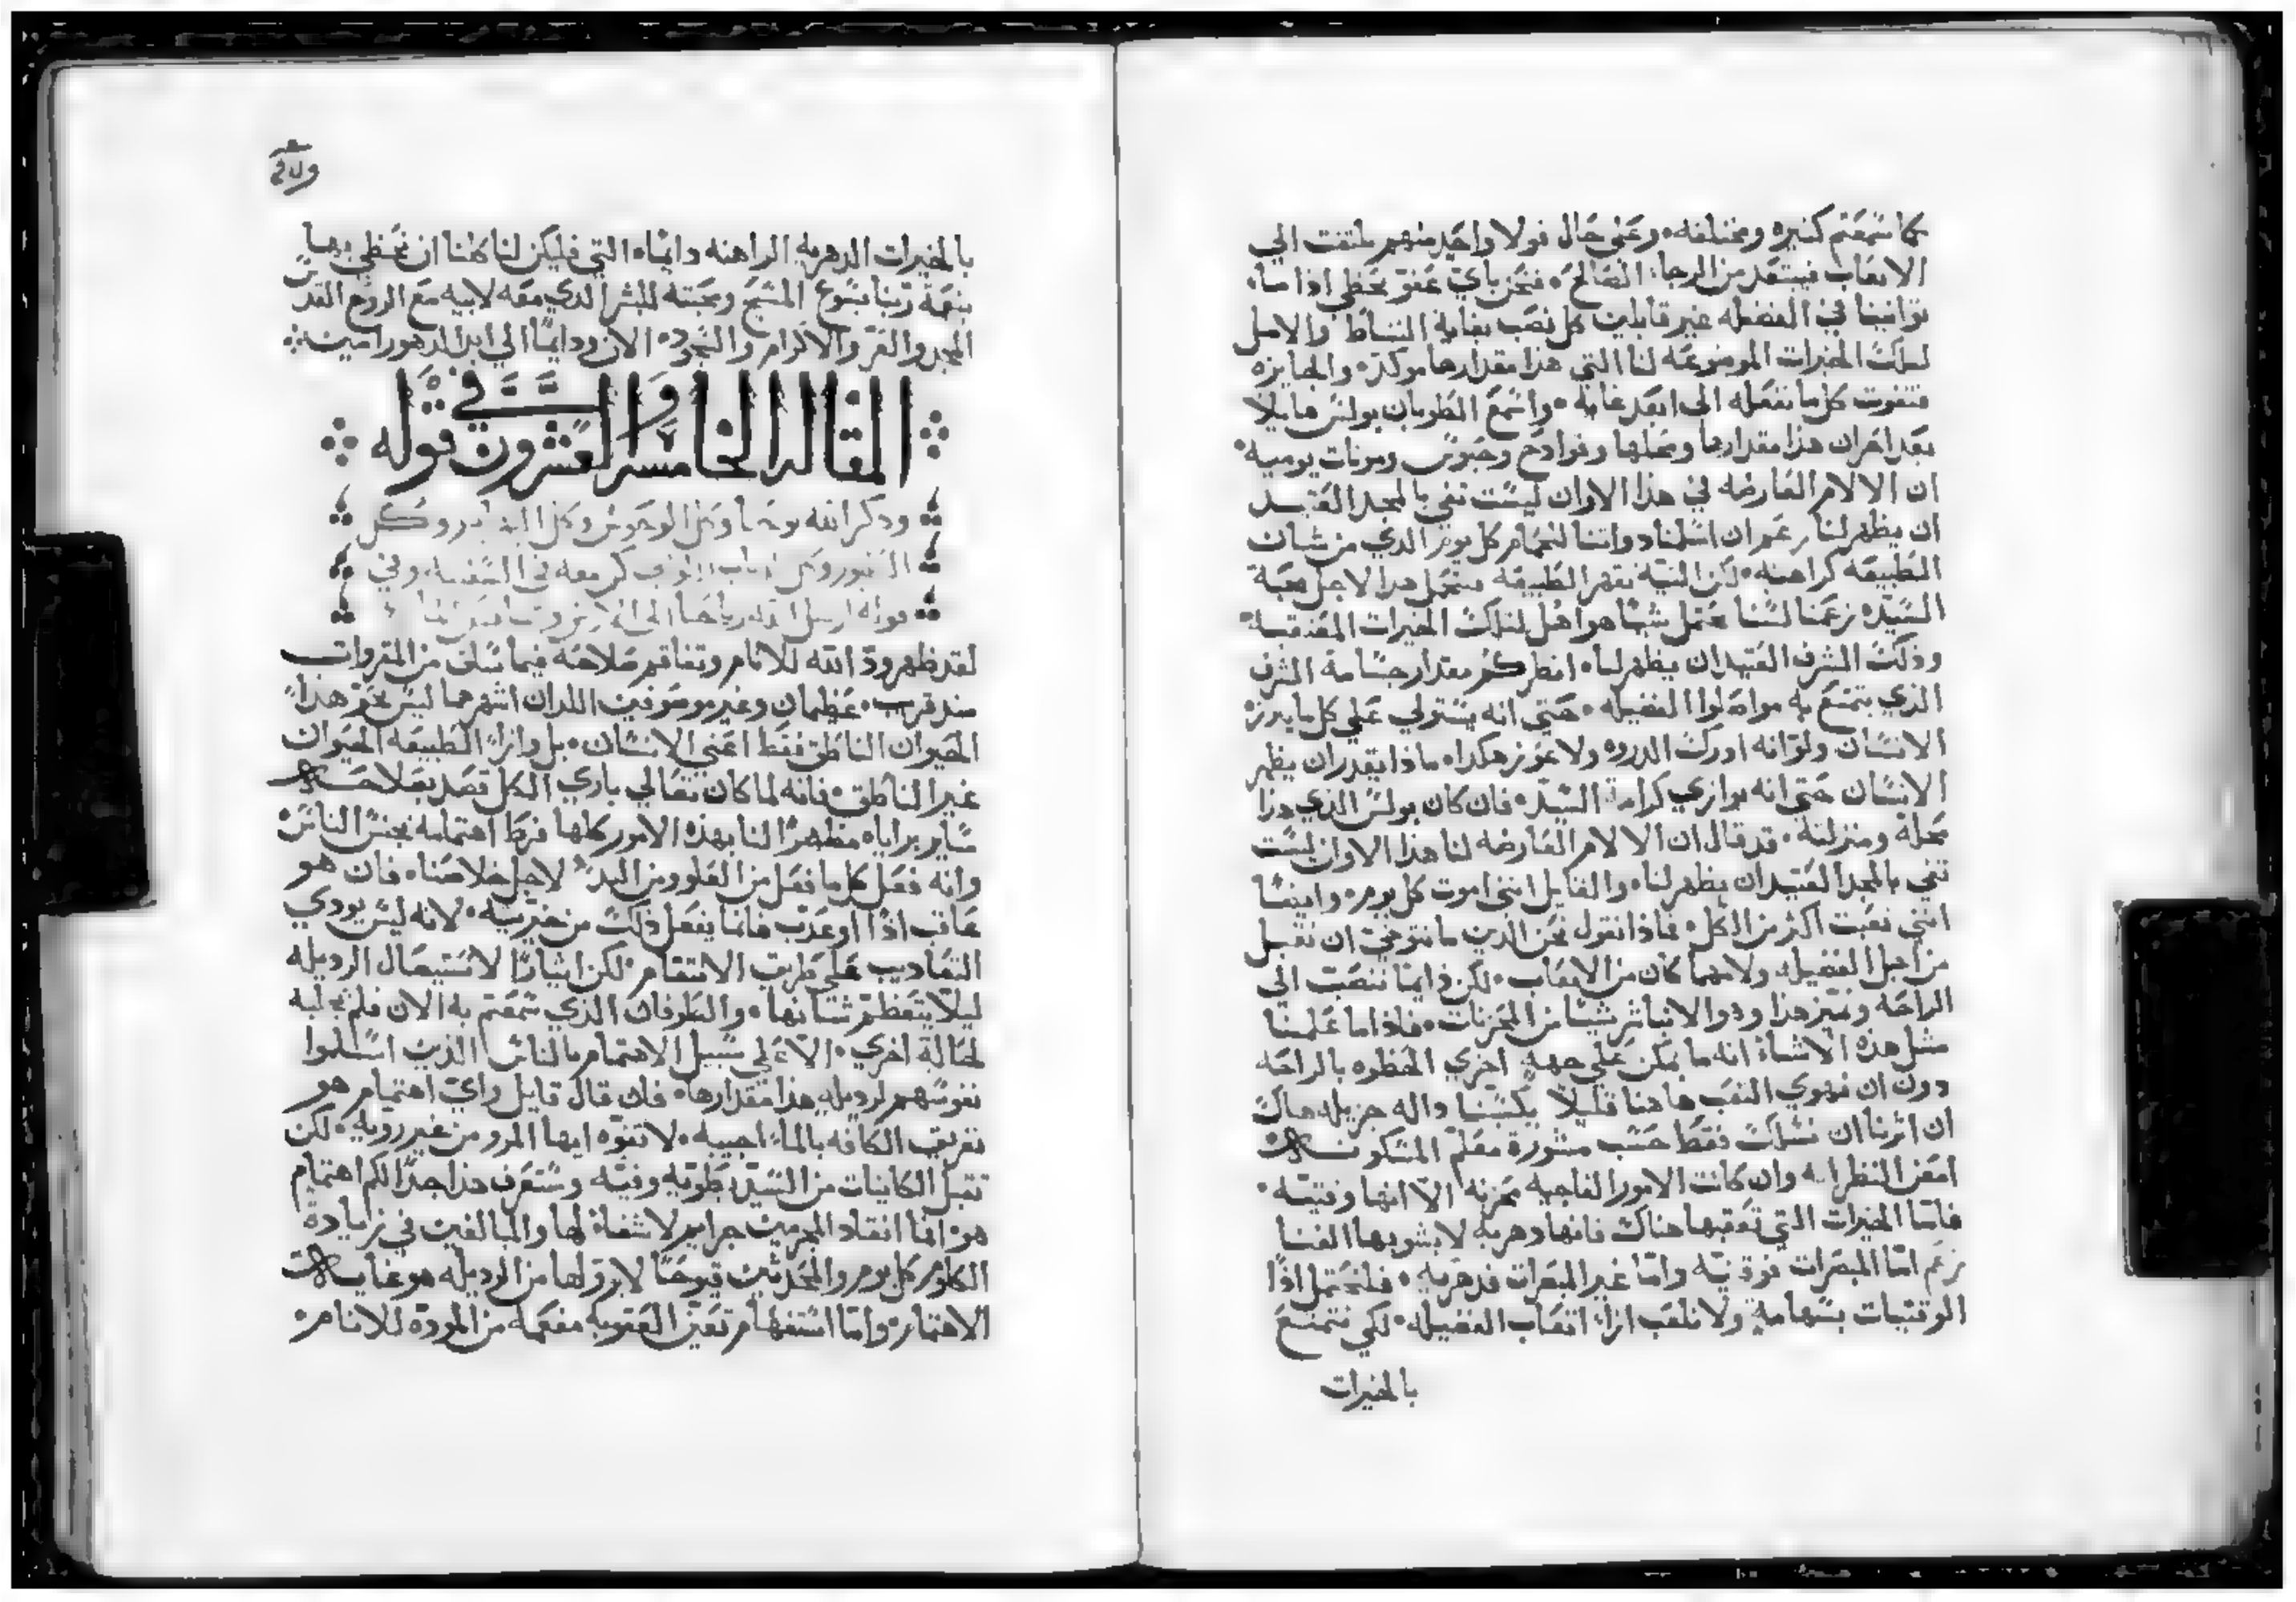 كما سمعتم كثيره ومختلفه وعلى حال فولا واحد منهم ملتفت الي
الاتعاب فيبتعد من الرجاء الصالح فنحن باي عفو نحظي اذا ما
توانينا في الفضيله غير قابلين كل نصب بغاية النشاط والامل
لملك الخيرات الموضوعه لنا التي هذا مقدارها موكده والجايزه
فتفوت كل ما نفعله الى ابعد غايه واسمع الطوبان بولس هايلا
بعد احزان هذا مقدارها ومحلها وفوادح وحبوس ومونات يوميه
ان الالام العارضه في هذا الاوان ليست تفي بالمجد العتيد
ان يظهر لنا زعم ان اسلمنا دواتنا للحمام كل يوم الدي من شان
الطبيعه كراهته لكن النيه تقهر الطبيعه فنحمل هدا لاجل محبة
السيد زعمنا لسنا نحتمل شيا هو اهل لتلك الخيرات المغدقه
وذلك الشرف العتيد ان يظهر لنا انظر كم مقدار جسامة الشرف
الذي يتمتع به مواصلوا الفضيله حتى انه يستولي على كل ما يبرز
الانسان ولو انه ادرك الدروه ولا عوز هكدا ماذا يقدر ان يظهر
الانسان حتى انه يوازي كرامة السيد فان كان بولس الذي هذا
محله ومنزلته قد قال ان الالام العارضه لنا هذا الاوان ليست
تفي بالمجد العتيد ان يظهر لنا والقايل انني اموت كل يوم وايضا
انني تعبت اكثر من الكل فماذا نقول نحن الذين ما نتوخى ان نقبل
من اجل الفضيله ولا مهما كان من الاتعاب لكن دايما ننصب الى
الراحه ونميز هذا ودوا الا نباشر شيا من المحزنات فاذ اما علمنا
مثل هذه الاشياء انه ما يمكن على جهة اخري الحظوه بالراحه
دون ان نهوي التعب هاهنا قليلا يكسبنا داله جزيله هناك
ان اثرنا ان نسلك فقط حسب مشورة معلم المسكونه
امعن النظر انه وان كانت الامور الفاجيه محزنه الا انها وقتيه
فاما الخيرات التي تعقبها هناك فانها دهريه لا يشوبها الفنا
زعم اما المبصرات فوقتيه واما غير المبصرات فدهريه فلنحتمل اذا
الوقتيات بشهامة ولا نلعب ازاء اتعاب الفضيله لكي نتمتع
بالخيرات
بالخيرات الدهريه الراهنه دايما التي فليكن لنا كلنا ان نحظي بها
بنعمة ربنا يسوع المسيح ومحبته للبشر الدي معه لابيه مع الروح القدس
المجد والعز والاكرام والسجود الان ودايما الي ابد الدهور امين
المقاله الخامسه والعشرون في قوله
ودكر الله نوحا وكل الوحوش وكل البهايم وكل
الطيور وكل الدباب التي كن معه في السفينه وفي
قوله ارسل الله رياحا الى الارض
لقد ظهر ود الله للانام وتفاقم صلاحه فيما سلف من المقروات
مند قريب عظيمان وغير موصوفين اللدان اشهرهما ليس نحو هدا
الحيوان الناطق فقط اعني الانسان بل وازاء الطبيعه الحيوان
غير الناطق فانه لما كان تعالي باري الكل قصد بصلاحه
ساير براياه مظهرا لنا بهذه الامور كلها فرط اهتمامه بجنس الناس
وانه فعل كل ما فعل من العلو ومن البدء لاجل خلاصنا فان هو
عاقب اذا او عدب فانما يفعل ذلك من خيريته لانه ليس يودي
التعاديب على طريق الانتقام لكن ايثارا لاستيصال الرديله
ليلا يتعظم شانها والطوفان الذي سمعتم به الان فلم يجلبه
لحالة اخري الا على سبيل الاهتمام بالناس الذين اسلموا
نفوسهم لرديله هذا مقدارها فان قال قايل واي اهتمام هو
تغريق الكافه بالماء اجيبه لا تتفوه ايها المرو من غير رويه لكن
تقبل الكاينات من السيد بطويه وقيه وستعرف هذا جدا لكم اهتمام
هو انما انقاد المجرمين جراير لا شفاء لها والمبالغين في زيادة
الكلوم كل يوم والمحدثين قروحا لا برو لها من الرديله هو غاية
الاهتمام واما استفهام تعني العقوبه مفعمه من الموده للانام